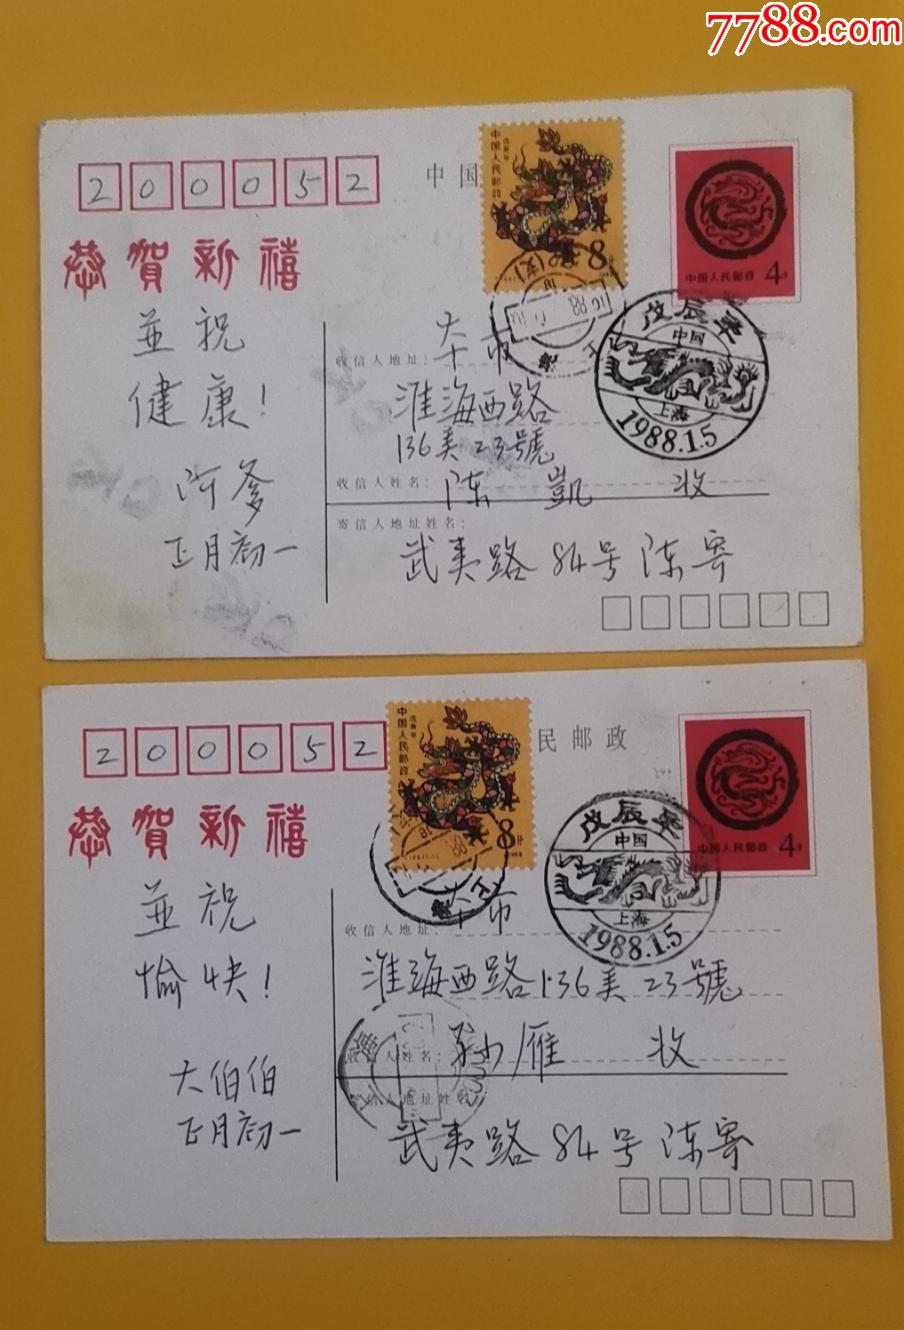 7788.com
200052
中国
戊辰年
中国人民邮政
8分
中国人民邮政 4分
恭贺新禧
並祝
健康!
阿爹
正月初一
戊辰年
中国
上海
1988.1.5
收信人地址: 本市
淮海西路
136弄23號
收信人姓名: 陈凱 收
寄信人地址姓名:
武夷路84号陈寄
200052
民邮政
戊辰年
中国人民邮政
8分
中国人民邮政 4分
恭贺新禧
並祝
愉快!
大伯伯
正月初一
戊辰年
中国
上海
1988.1.5
收信人地址: 本市
淮海西路136弄23號
收信人姓名: 孙雁 收
寄信人地址姓名:
武夷路84号陈寄